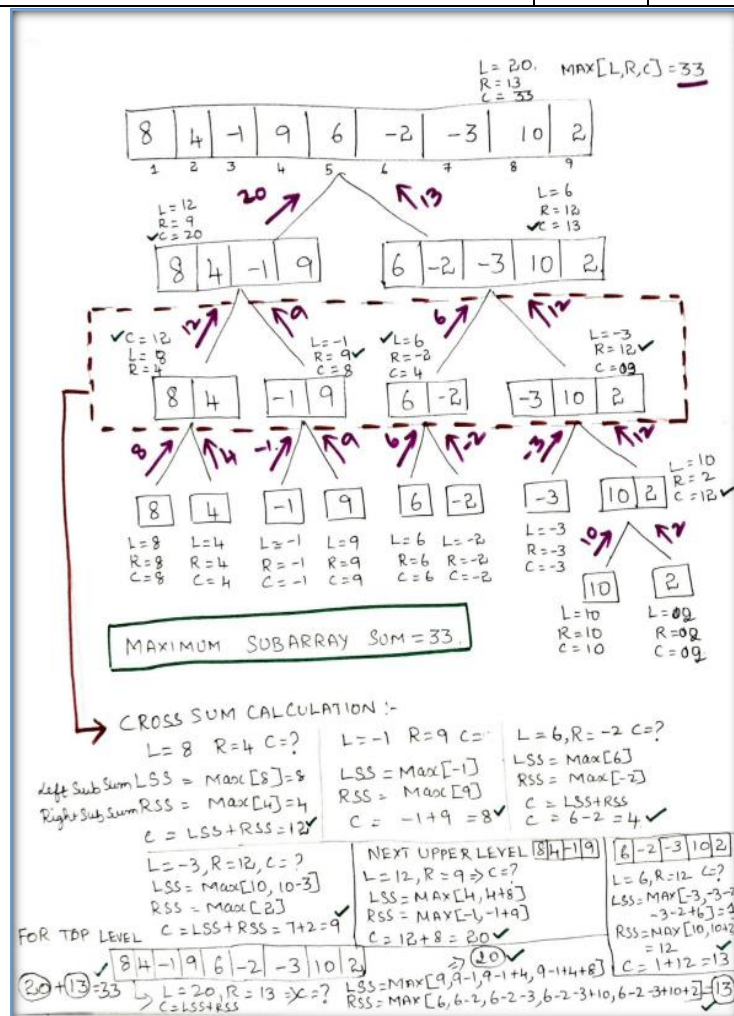 L= 20. MAX[L,R,C] = 33
R= 13
C= 33
8 4 -1 9 6 -2 -3 10 2
1 2 3 4 5 6 7 8 9
20 13
L= 12
R= 9
✓C= 20
L= 6
R= 12
✓C= 13
8 4 -1 9
6 -2 -3 10 2
12 9 6 12
✓C= 12
L= 8
R= 4
L= -1
R= 9✓
C= 8
✓L= 6
R= -2
C= 4
L= -3
R= 12✓
C= 09
8 4
-1 9
6 -2
-3 10 2
8 4 -1 9 6 -2 -3 12
L= 10
R= 2
C= 12✓
8 4 -1 9 6 -2 -3 10 2
L=8 L=4 L=-1 L=9 L=6 L=-2 L=-3
R=8 R=4 R=-1 R=9 R=6 R=-2 R=-3
C=8 C=4 C=-1 C=9 C=6 C=-2 C=-3
10 2
10 2
L=10 L=02
R=10 R=02
C=10 C=02
MAXIMUM SUBARRAY SUM = 33.
CROSS SUM CALCULATION :-
L= 8 R=4 C=?
Left Sub Sum LSS = Max[8]=8
Right Sub Sum RSS = Max[4]=4
C = LSS+RSS=12✓
L= -1 R=9 C=
LSS = Max[-1]
RSS = Max[9]
C = -1+9 =8✓
L= 6, R= -2 C=?
LSS = Max[6]
RSS = Max[-2]
C = LSS+RSS
C = 6-2 = 4✓
L= -3, R=12, C=?
LSS = Max[10, 10-3]
RSS = Max[2] ✓
C=LSS+RSS = 7+2=9
NEXT UPPER LEVEL 8 4 -1 9
L=12, R=9 => C=?
LSS=MAX[4,4+8]
RSS = MAX[-1,-1+9]
C= 12+8 = 20✓
6 -2 -3 10 2
L=6, R=12 C=?
LSS=MAX[-3,-3-2
-3-2+6]=1
RSS=MAX[10,10+2]
= 12 ✓
C= 1+12 =13
FOR TOP LEVEL
✓ 8 4 -1 9 6 -2 -3 10 2
20+13=33
L=20, R=13 => C=?
C=LSS+RSS
=> 20 ✓
LSS=MAX[9,9-1,9-1+4,9-1+4+8]
RSS= MAX[6,6-2,6-2-3,6-2-3+10,6-2-3+10+2]=13 ✓